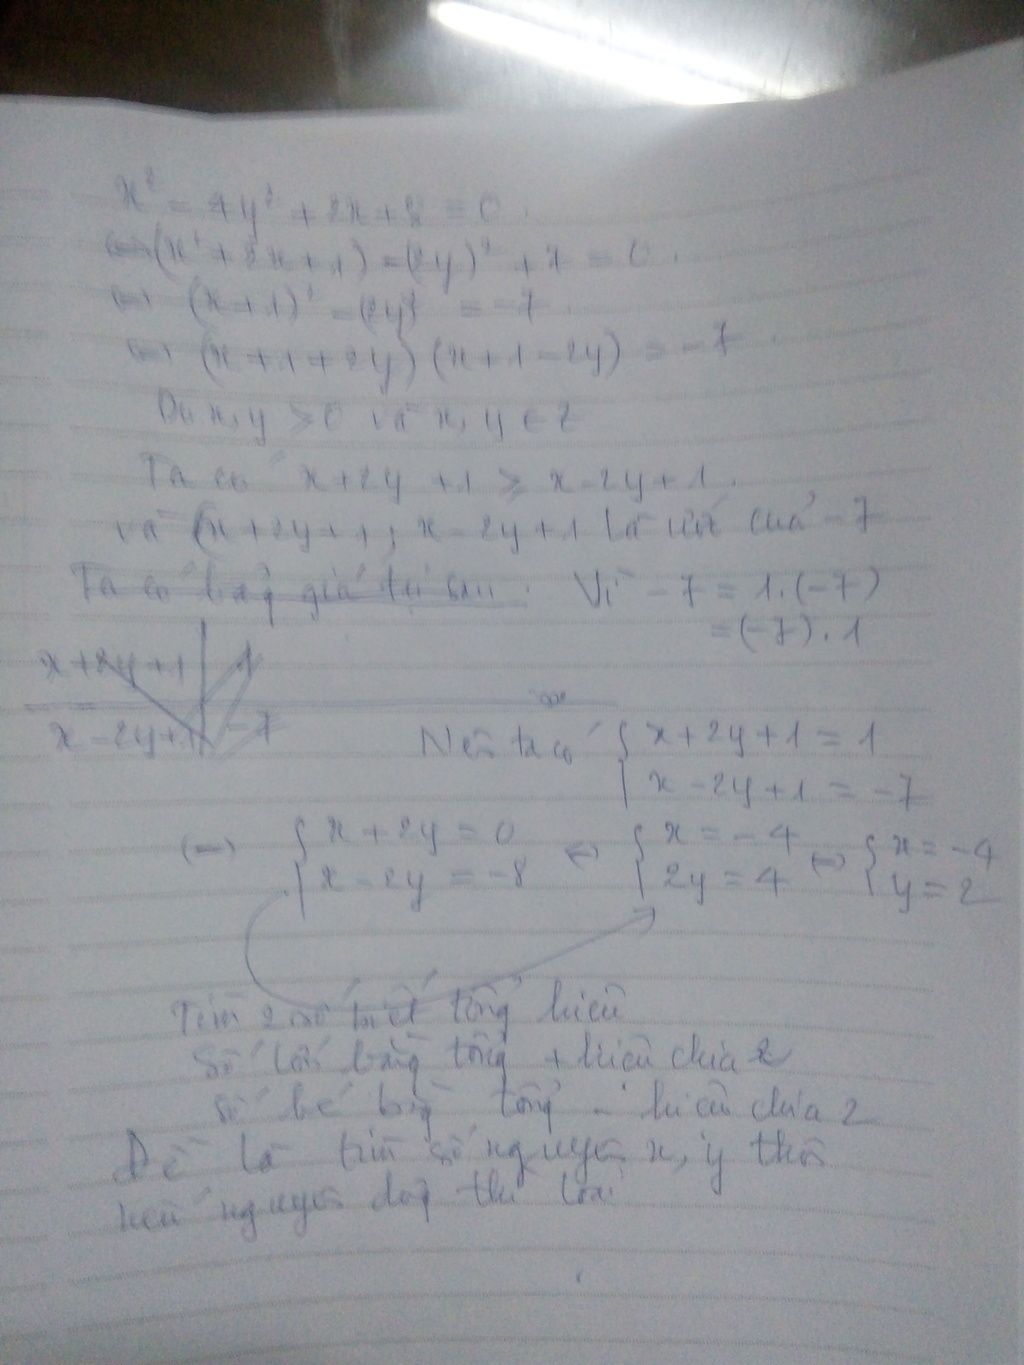 x² - 4y² + 2x + 8 = 0.
⇔ (x² + 2x + 1) - (2y)² + 7 = 0.
⇔ (x+1)² - (2y)² = -7.
⇔ (x+1+2y)(x+1-2y) = -7.
Do x, y > 0 và x, y ∈ Z
Ta có x+2y+1 ≥ x-2y+1.
và (x+2y+1; x-2y+1 là ước của -7
Ta có bảng giá trị sau. Vì -7 = 1.(-7)
= (-7).1
x+2y+1 | 1
x-2y+1 | -7
Nên ta có { x+2y+1 = 1
x-2y+1 = -7
⇔ { x+2y = 0 ⇔ { x = -4 ⇔ { x = -4
x-2y = -8 2y = 4 y = 2
Tìm 2 số biết tổng hiệu
Số lớn bằng tổng + hiệu chia 2
Số bé bằng tổng - hiệu chia 2
Đề là tìm số nguyên x, y thôi
nếu nguyên dương thì loại